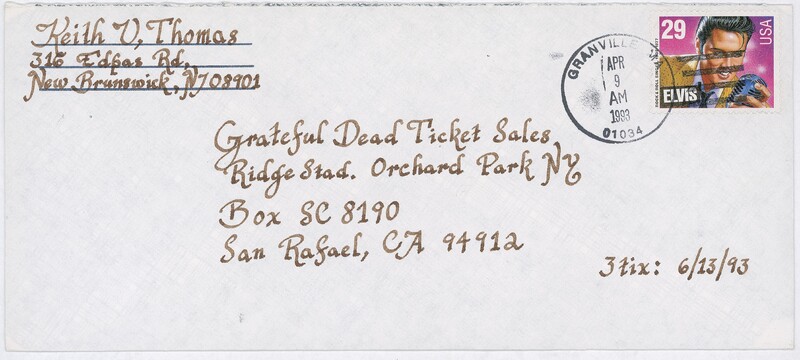 Keith V, Thomas
316 Edpas Rd,
New Brunswick, NJ 08901
GRANVILLE
APR
9
AM
1993
01034
29
USA
ELVIS
Grateful Dead Ticket Sales
Ridge Stad. Orchard Park NY
Box SC 8190
San Rafael, CA 94912
3tix: 6/13/93